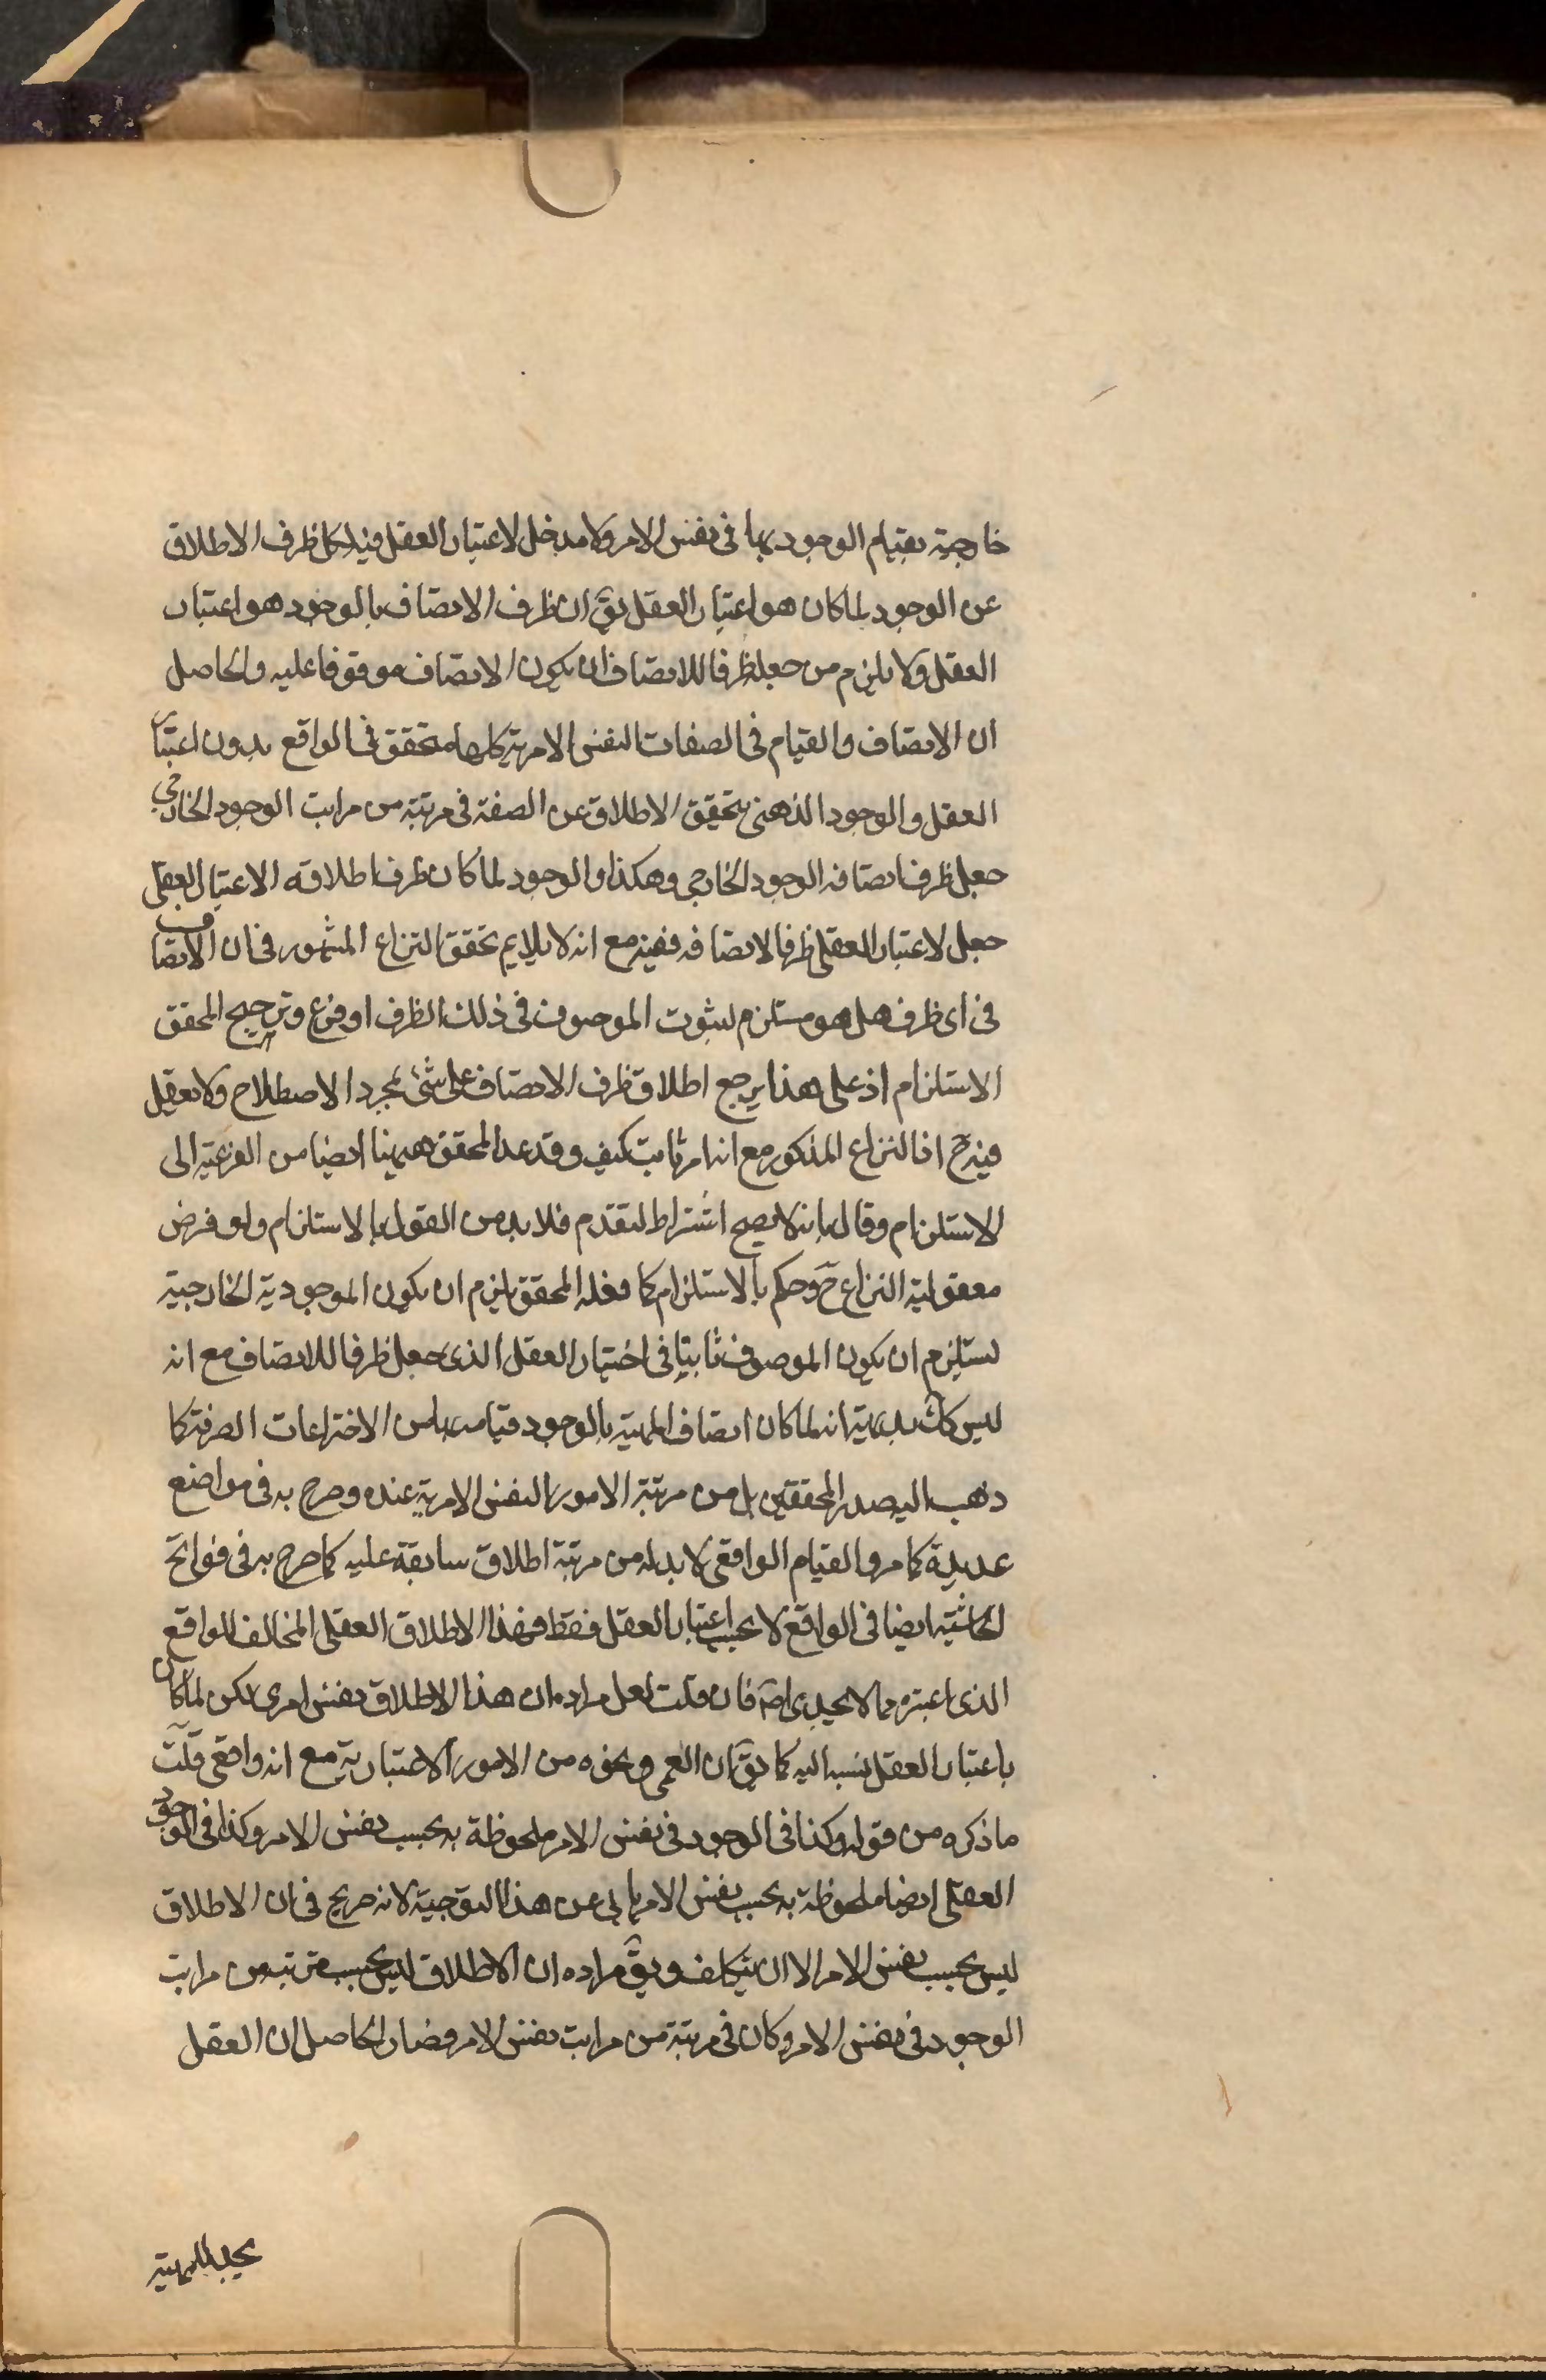 خارجية بقيام الوجود بها في نفس الامر ولا مدخل لاعتبار العقل فيه لكن ظرف الاطلاق
عن الوجود لما كان هو اعتبار العقل يقٓ ان ظرف الاتصاف بالوجود هو اعتبار
العقل ولا يلزم من جعله ظرفا للاتصاف ان يكون الاتصاف موقوفا عليه والحاصل
ان الاتصاف والقيام في الصفات النفس الامرية كلها متحقق في الواقع بدون اعتبار
العقل والوجود الذهني يتحقق الاطلاق عن الصفة في مرتبة من مراتب الوجود الخارجي
جعل ظرف اتصافه الوجود الخارجي وهكذا والوجود لما كان ظرف اطلاقه الاعتبار العقلي
جعل لاعتبار العقلي ظرفا لاتصافه ففيه مع انه لا يلايم تحقق النزاع المشهور في ان الاتصاف
في اى ظرف هل هو مستلزم لثبوت الموصوف في ذلك الظرف او فرع وترجيح المحقق
الاستلزام اذ على هذا يرجع اطلاق ظرف الاتصاف على شئ لمجرد الاصطلاح ولا يعقل
فيه حٓ النزاع المذكور مع انه امر ثابت كيف وقد عدل المحقق ههنا ايضا من الفرعية الى
الاستلزام وقال بانه لا يصح اشتراط التقدم فلا بد من القول بالاستلزام ولو فرض
معقولية النزاع حٓ وحكم بالاستلزام كما فعله المحقق يلزم ان يكون الموجودية الخارجية
يستلزم ان يكون الموصوف ثابتا في اختبار العقل الذى جعل ظرفا للاتصاف مع انه
ليس كك بديهية انه لما كان اتصاف المهية بالوجود قيامه بها من الاختراعات الصرفة كما
ذهب اليه صدر المحققين بل من مرتبة الامور النفس الامرية عنده وصرح به في مواضع
عديدة كما مر والقيام الواقعي لا بد له من مرتبة اطلاق سابقة عليه كما صرح به في فواتح
الحاشية ايضا في الواقع لا بحسب اعتبار العقل فقط فهذا الاطلاق العقلي المخالف للواقع
الذى اعتبره مما لا يجدى اصٓ فان قلت لعل مراده ان هذا الاطلاق نفس امرى لكن لما كان
باعتبار العقل نسب اليه كما يقٓ ان العمى ونحوه من الامور الاعتبارية مع انه واقعي قلت
ما ذكره من قوله وكذا في الوجود في نفس الامر ملحوظة به بحسب نفس الامر وكذا في الوجود
العقلي ايضا ملحوظة به بحسب نفس الامر يابى عن هذا التوجيه لانه صريح في ان الاطلاق
ليس بحسب نفس الامر الا ان يتكلف ويقٓ مراده ان الاطلاق ليس بحسب مرتبة من مراتب
الوجود في نفس الامر وكان في مرتبة من مراتب نفس الامر فصار الحاصل ان العقل
يجد المهية